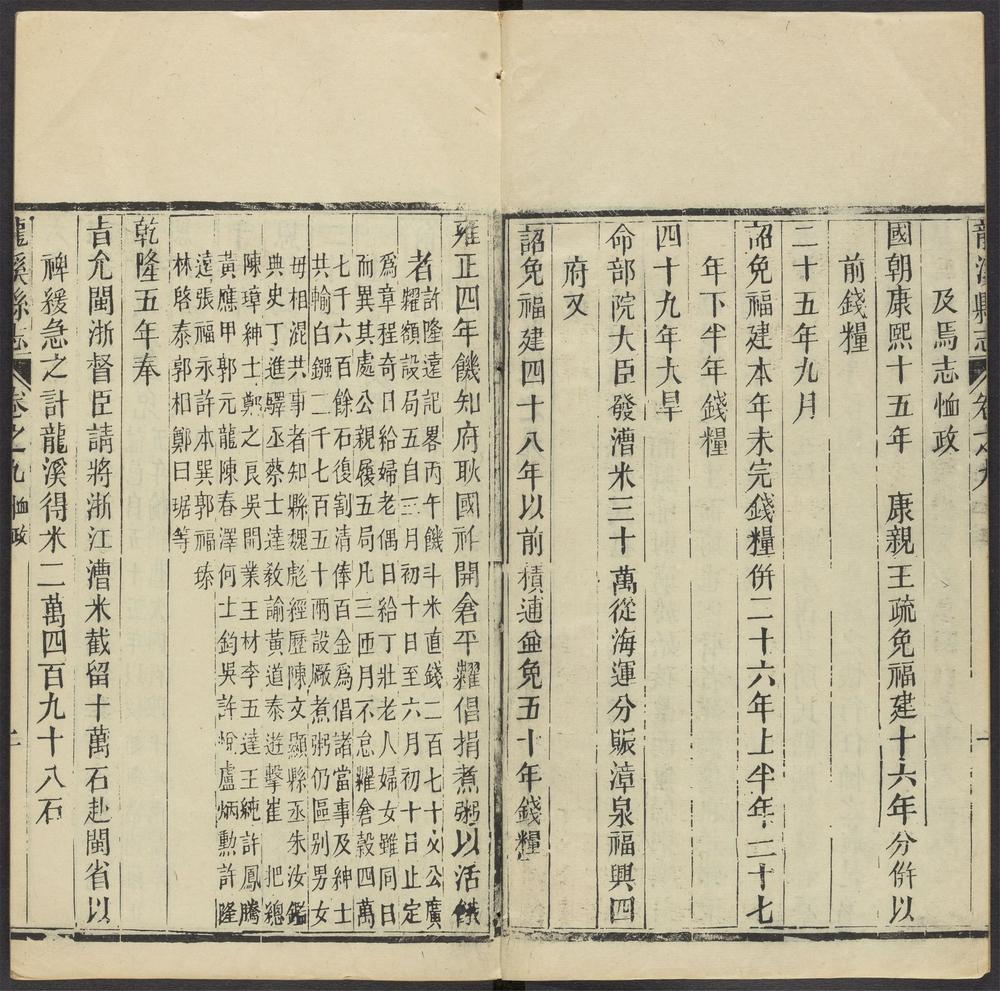 龍溪縣志 卷之九
及馬志恤政
國朝康熙十五年 康親王疏免福建十六年分併以
前錢糧
二十五年九月
詔免福建本年未完錢糧併二十六年上半年二十七
年下半年錢糧
四十九年大旱
命部院大臣發漕米三十萬從海運分賑漳泉福興四
府又
詔免福建四十八年以前積逋並免五十年錢糧
雍正四年饑知府耿國祚開倉平糶倡捐煮粥以活饑
者許隆遠記畧丙午饑斗米直錢二百七十文公廣
糶額設局五自三月初十日至六月初十日止定
爲章程奇日給婦老偶日給丁壯老人婦女雖同日
而異其處公親履五局凡三匝月不怠糶倉穀四萬
七千六百餘石復割清俸百金爲倡諸當事及紳士
共輸白鏹二千七百五十兩設厰煮粥仍區别男女
毋相混共事者知縣魏彪經歷陳文顯縣丞朱汝鑑
典史丁進驛丞蔡士達敎諭黃道泰遊擊崔 把總
陳璋紳士鄭之良吳開業王材李五達王純許鳳騰
黃應甲郭元龍陳春澤何士鈞吳許 盧炳勲許隆
遠張福永許本巽郭福瑧
林啓泰郭和鄭日琚等
乾隆五年奉
旨允閩浙督臣請將浙江漕米截留十萬石赴閩省以
裨緩急之計龍溪得米二萬四百九十八石
龍溪縣志 卷之九 恤政 二